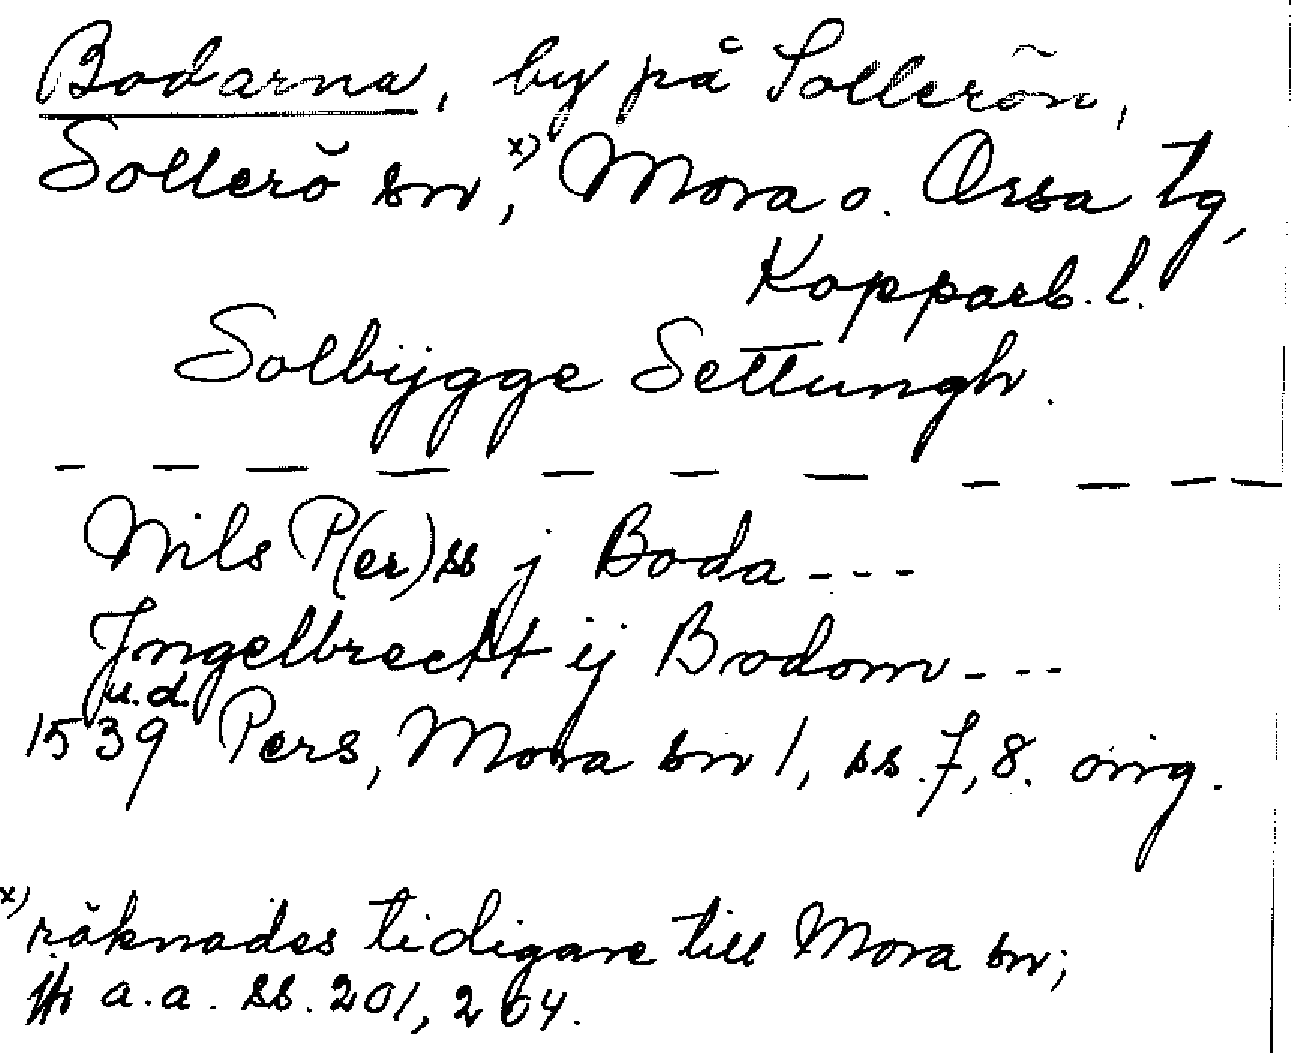 Bodarna, by på Sollerön,
Sollerö sn,x) Mora o. Orsa tg,
Kopparb. l.
Solbijgge Settungh.
— — — — — — — — — — —
Nils P(er)ss j Boda - - -
Jngelbreckt ij Bodom - - -
u.d.
1539 Pers, Mora sn 1, ss. 7, 8. orig.
x) räknades tidigare till Mora sn;
a.a. ss. 201, 264.